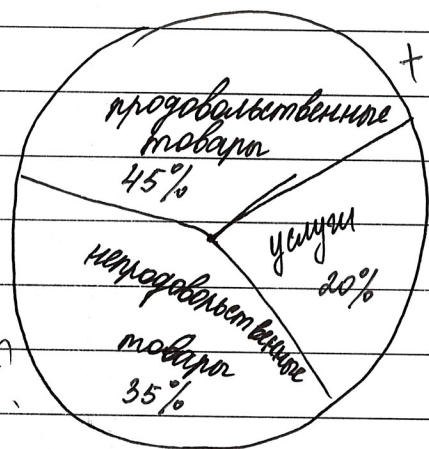 +
продовольственные
товары
45%
услуги
20%
непродовольственные
товары
35%